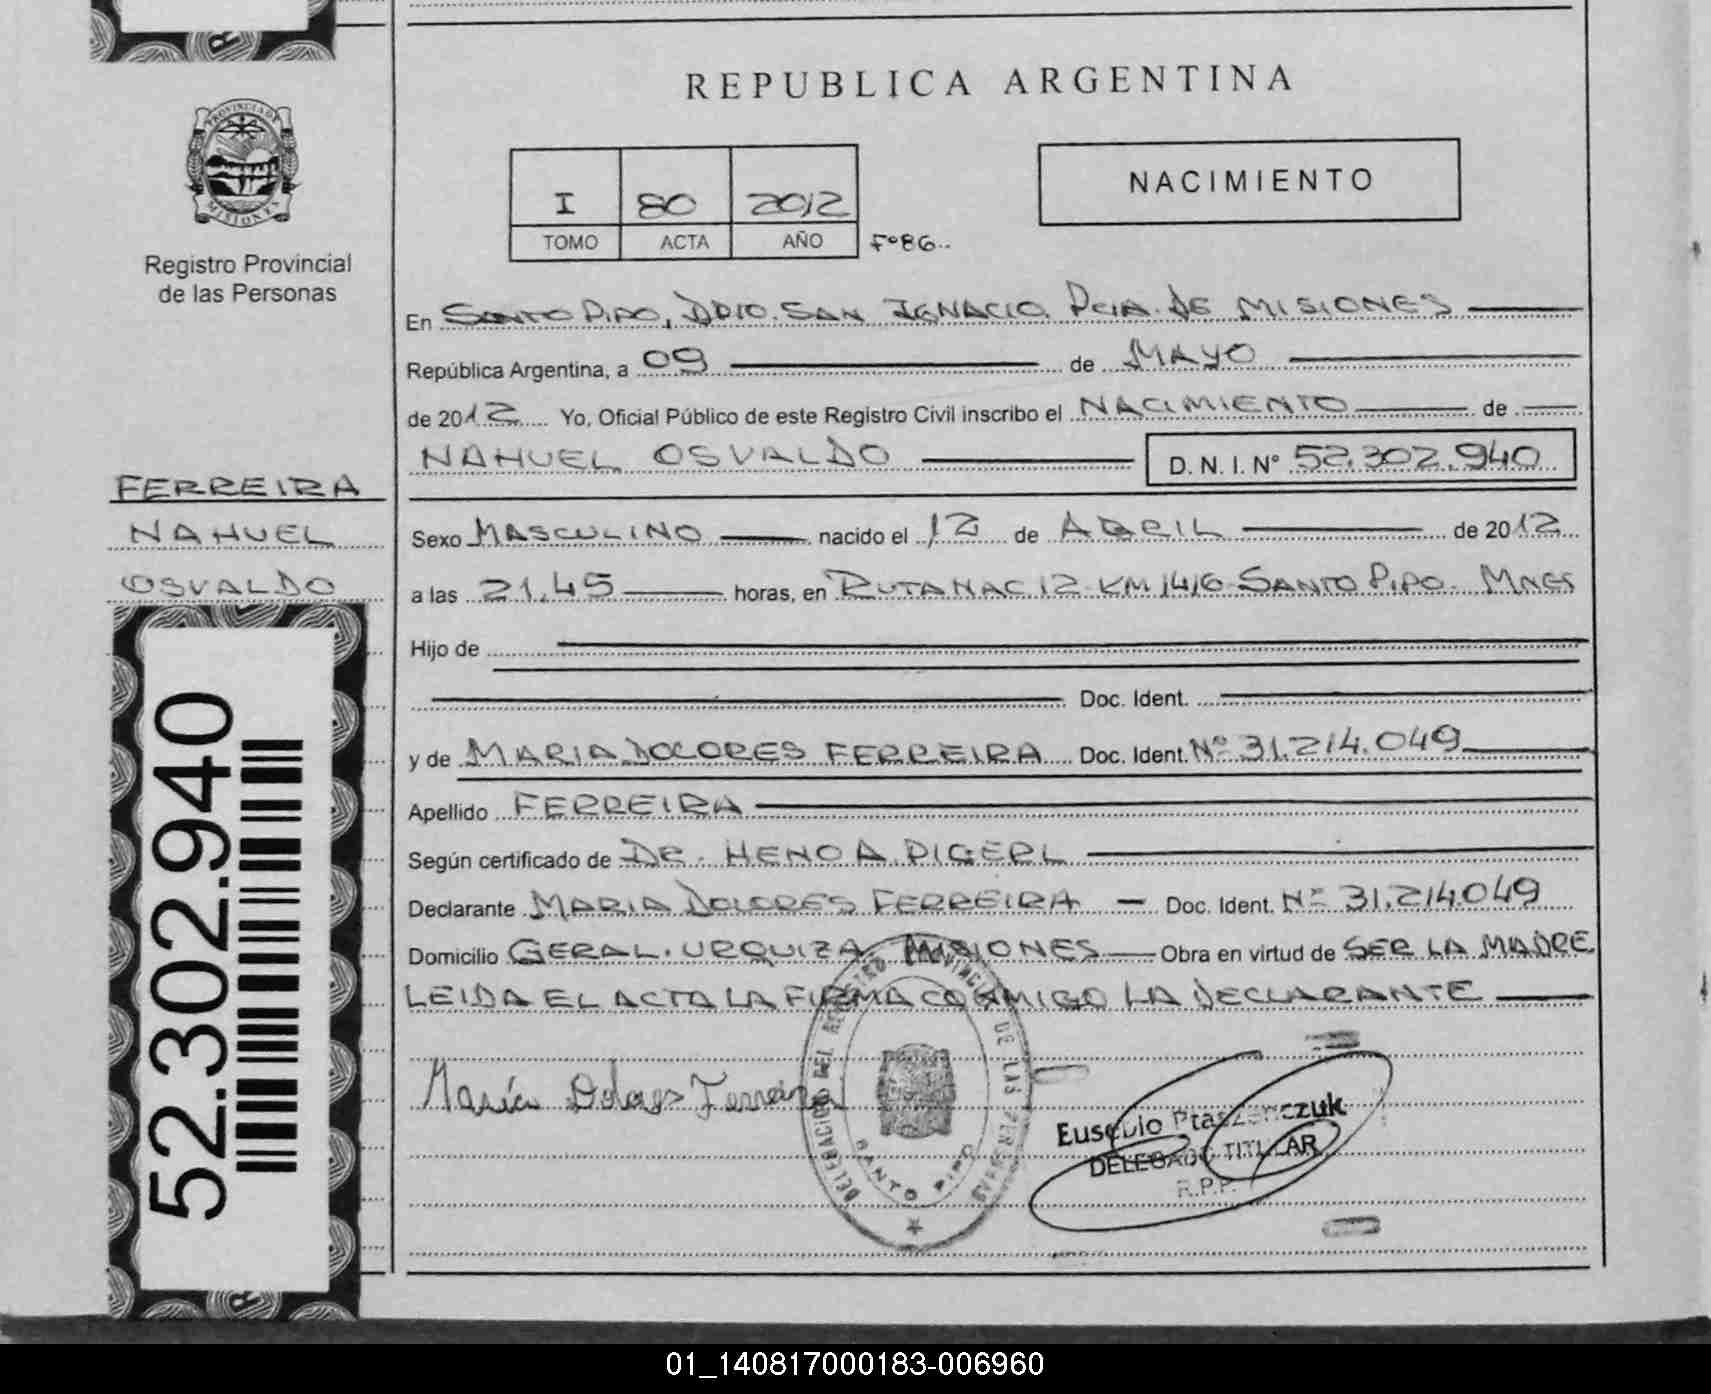 REPUBLICA ARGENTINA
PROVINCIA DE
MISIONES
Registro Provincial
de las Personas
I 80 2012
TOMO ACTA AÑO Fº86..
NACIMIENTO
En SANTO PIPO, DPTO. SAN IGNACIO PCIA. DE MISIONES
República Argentina, a 09 de MAYO
de 2012 Yo, Oficial Público de este Registro Civil inscribo el NACIMIENTO de
NAHUEL OSVALDO D.N.I.Nº 52.302.940
FERREIRA
NAHUEL
OSVALDO
52.302.940
Sexo MASCULINO nacido el 12 de ABRIL de 2012
a las 21,45 horas, en RUTA NAC 12 KM 1416 SANTO PIPO. MNES
Hijo de
Doc. Ident.
y de MARIA DOLORES FERREIRA Doc. Ident. Nº 31.214.049
Apellido FERREIRA
Según certificado de DR.
Declarante MARIA DOLORES FERREIRA Doc. Ident. Nº 31.214.049
Domicilio GERAL. URQUIZA MISIONES Obra en virtud de SER LA MADRE
LEIDA EL ACTA LA FIRMA CONMIGO LA DECLARANTE
María Dolores Ferreira
DELEGACION DEL REGISTRO PROVINCIAL DE LAS PERSONAS
SANTO PIPO
Eusebio
DELEGADO TITULAR
R.P.P.
01_140817000183-006960